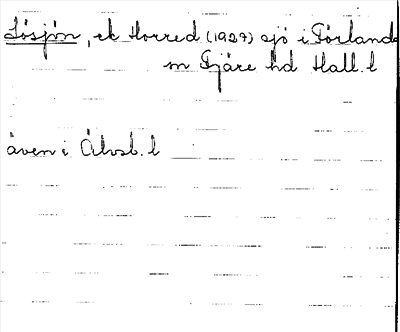 Lösjön, ek Horred (1927) sjö i Förlanda
sn Fjäre hd Hall. l
även i Älvsb. l